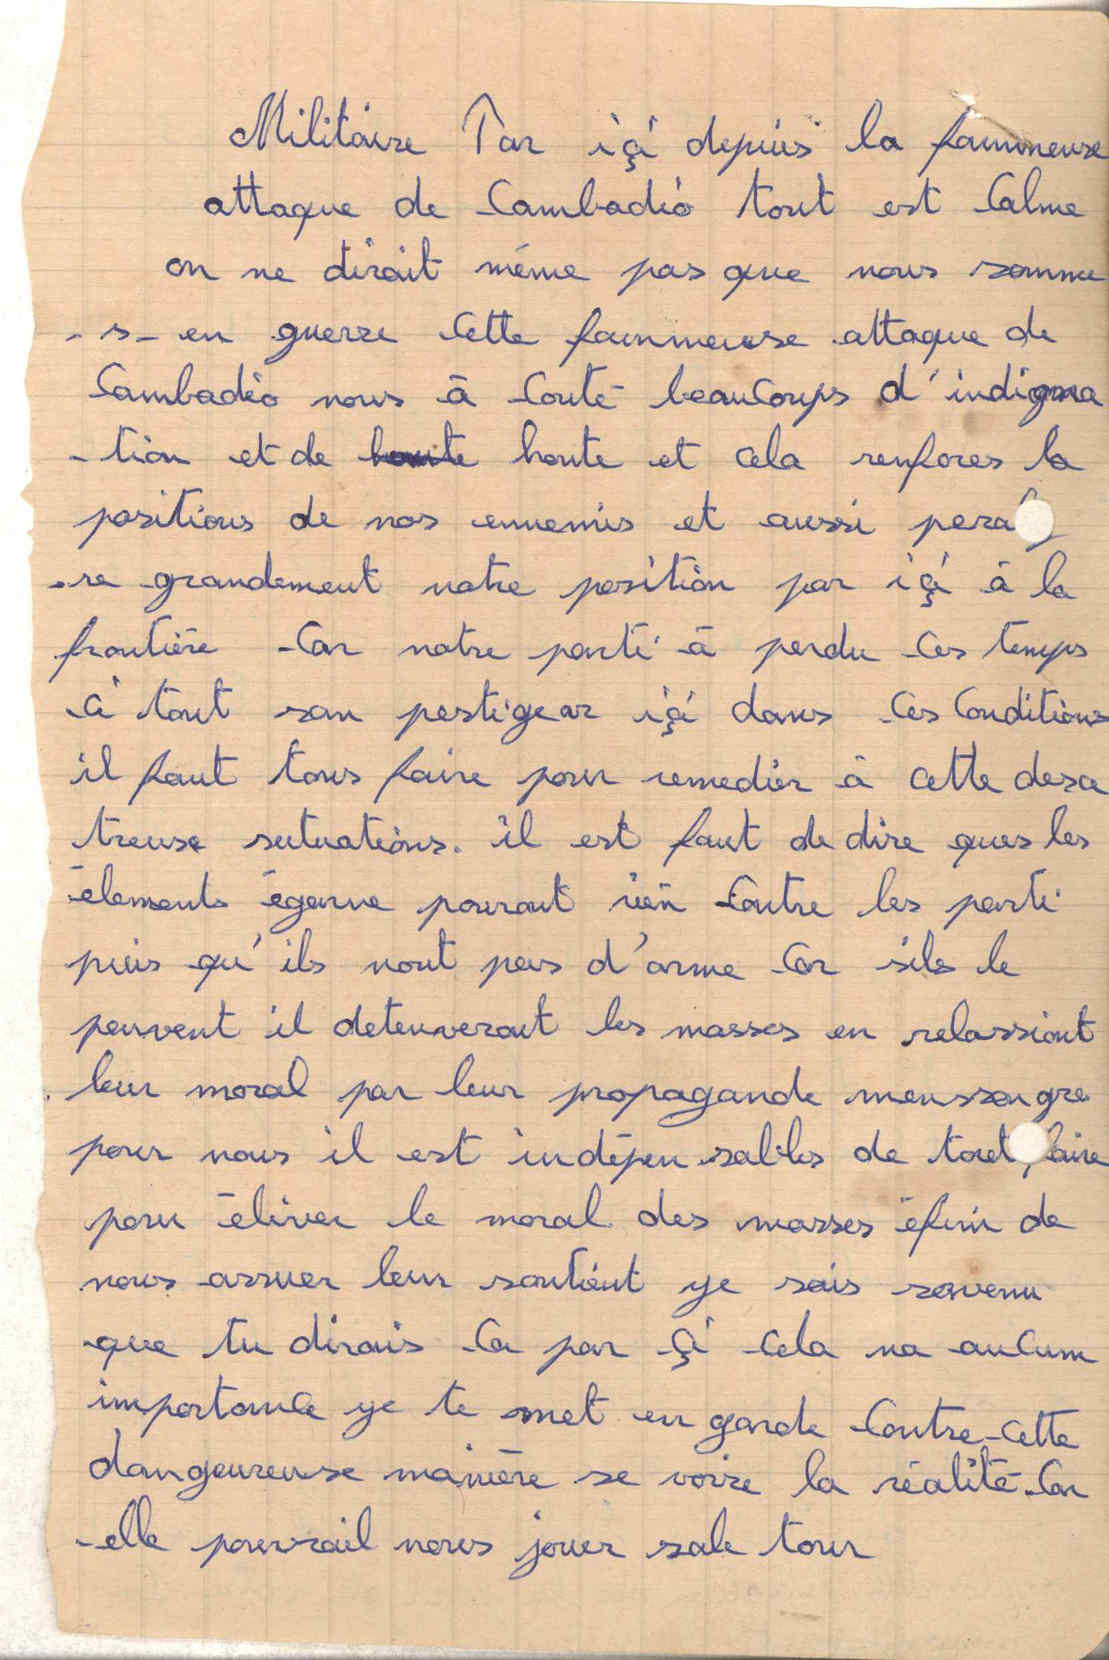 Militaire Par içi depuis la fammeuse
attaque de Cambadio tout est Calme
on ne dirait même pas que nous somme
-s- en guerre Cette fammeuse attaque de
Cambadio nous à Couté beauCoups d'indigna
-tion et de honte et cela renfores la
positions de nos ennemis et aussi pera
-re grandement notre position par içi à la
frontière Car notre parti à perdu Ces temps
Ci tout son pestigear içi dans Ces Conditions
il faut tous faire pour remedier à Cette desa
treuse setuations. il est faut de dire ques les
élements égarve pouront rien Contre les parti
puis qu'ils nont pas d'arme Car sils le
peuvent il detenveront les masses en relassiont
leur moral par leur propagande menssongre
pour nous il est indépensables de tout faire
pour éliver le moral des masses éfini de
nous assuer leur soutient ye sais sevenu
que tu dirais Ca par çi Cela na auCum
importance ye te met en garde Contre-Cette
dangeureuse manière se voire la réalité Car
-elle pouvrail nous jouer sale tour